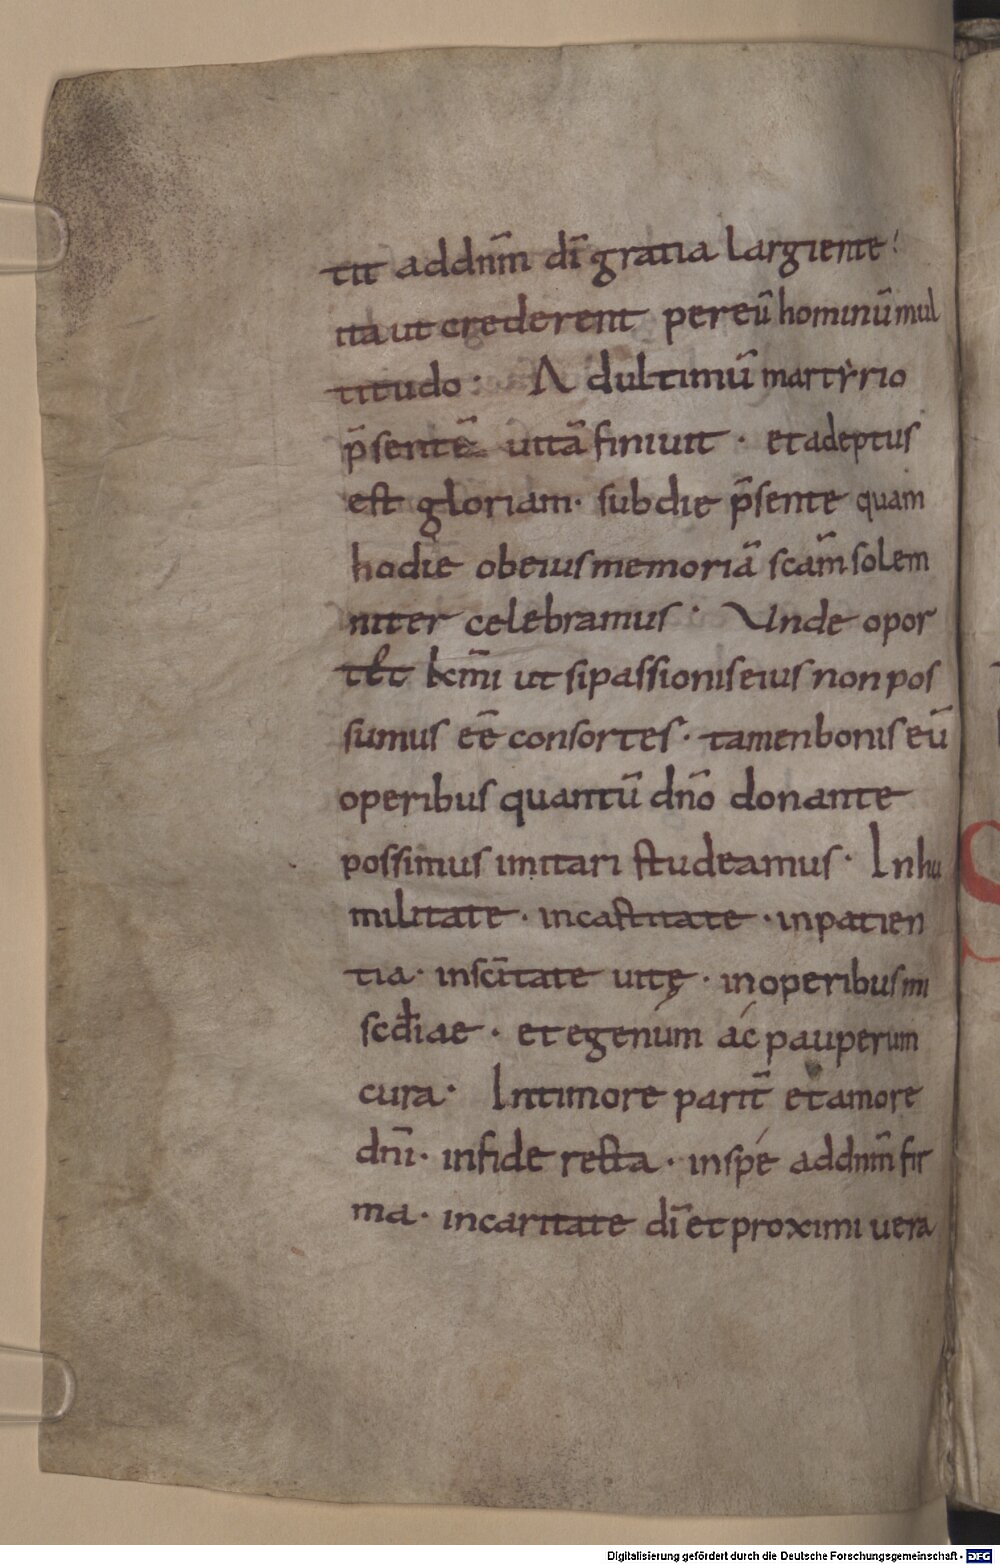 tit addnm̄ dī gratia largiente
ita ut crederent per eū hominū mul
titudo· Ad ultimū martẏrio
p̄sentē uitā finiuit· et adeptus
est gloriam· sub die p̄sente quam
hodie ob eius memoriā scām solem
niter celebramus· Unde opor
tet kr̄mi ut si passionis eius non pos
sumus eē consortes· tamen bonis eū
operibus quantū dnō donante
possimus imitari studeamus· In hu
militate· in castitate· in patien
tia· in scītate uitę· in operibus mi
scd̄iae· et egenúm ác pauperum
cura· In timore parit̄ et amore
dnī· in fide recta· in spé ad dnm̄ fir
ma· in caritate dī et proximi uera
Digitalisierung gefördert durch die Deutsche Forschungsgemeinschaft - DFG